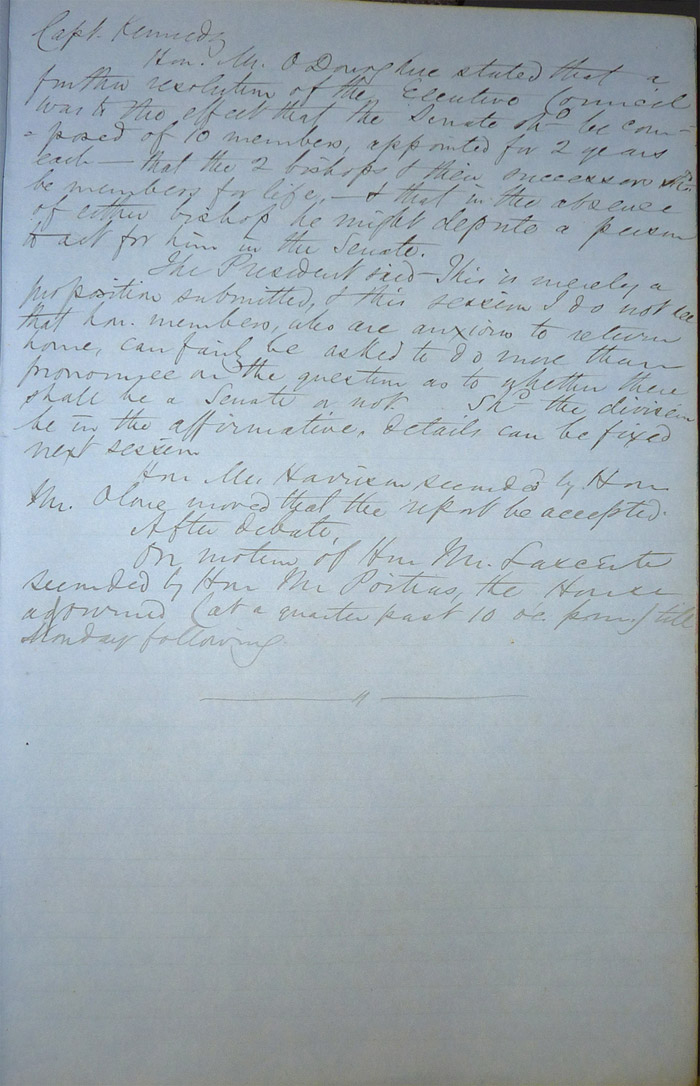 Capt. Kennedy
Hon. Mr. O'Donoghue stated that a
further resolution of the Executive Council
was to the effect that the Senate shd be com-
-posed of 10 members, appointed for 2 years
each — that the 2 bishops & their successors shd.
be members for life, — & that in the absence
of either bishop he might depute a person
to act for him in the Senate.
The President said — This is merely a
proposition submitted, & this session I do not see
that hon. members, who are anxious to return
home, can fairly be asked to do more than
pronounce on the question as to whether there
shall be a Senate or not Shd the division
be in the affirmative, details can be fixed
next session
Hon Mr. Harrison seconded by Hon
Mr. Olone moved that the report be accepted.
After debate,
On motion of Hon Mr. Laxcerte
seconded by Hon Mr Poitras, the House
adjourned (at a quarter past 10 o'c. p.m.) till
Monday following.